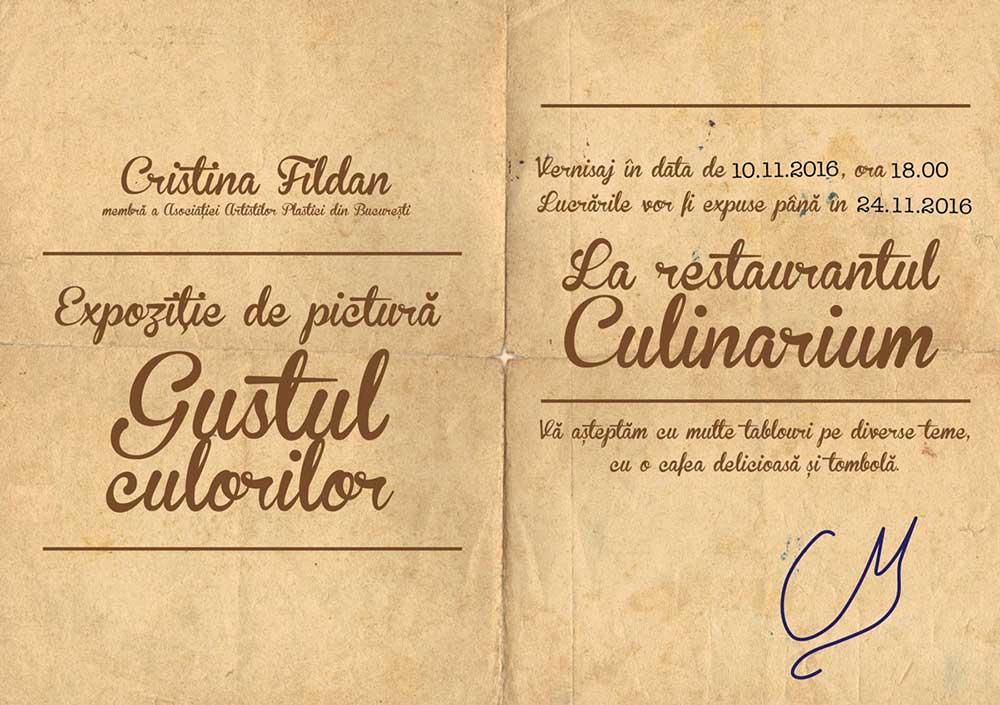 Cristina Fildan
membră a Asociației Artiștilor Plastici din București
Expoziție de pictură
Gustul
culorilor
Vernisaj în data de 10.11.2016, ora 18.00
Lucrările vor fi expuse până în 24.11.2016
La restaurantul
Culinarium
Vă așteptăm cu multe tablouri pe diverse teme,
cu o cafea delicioasă și tombolă.